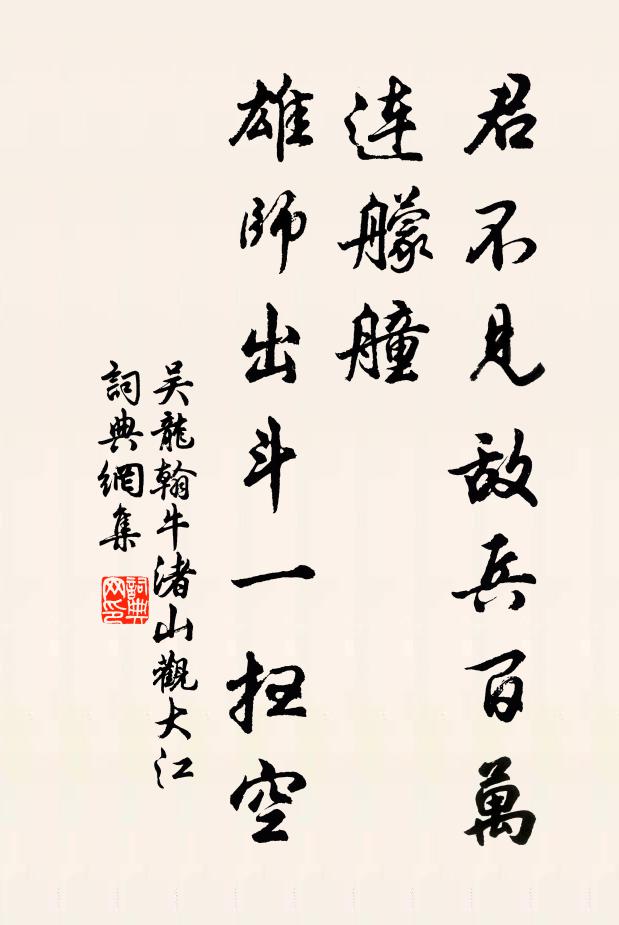 君不見敵兵百萬
連艨艟
雄師出斗一掃空
吴龍翰牛渚山觀大江
詞典網集
詞典網印